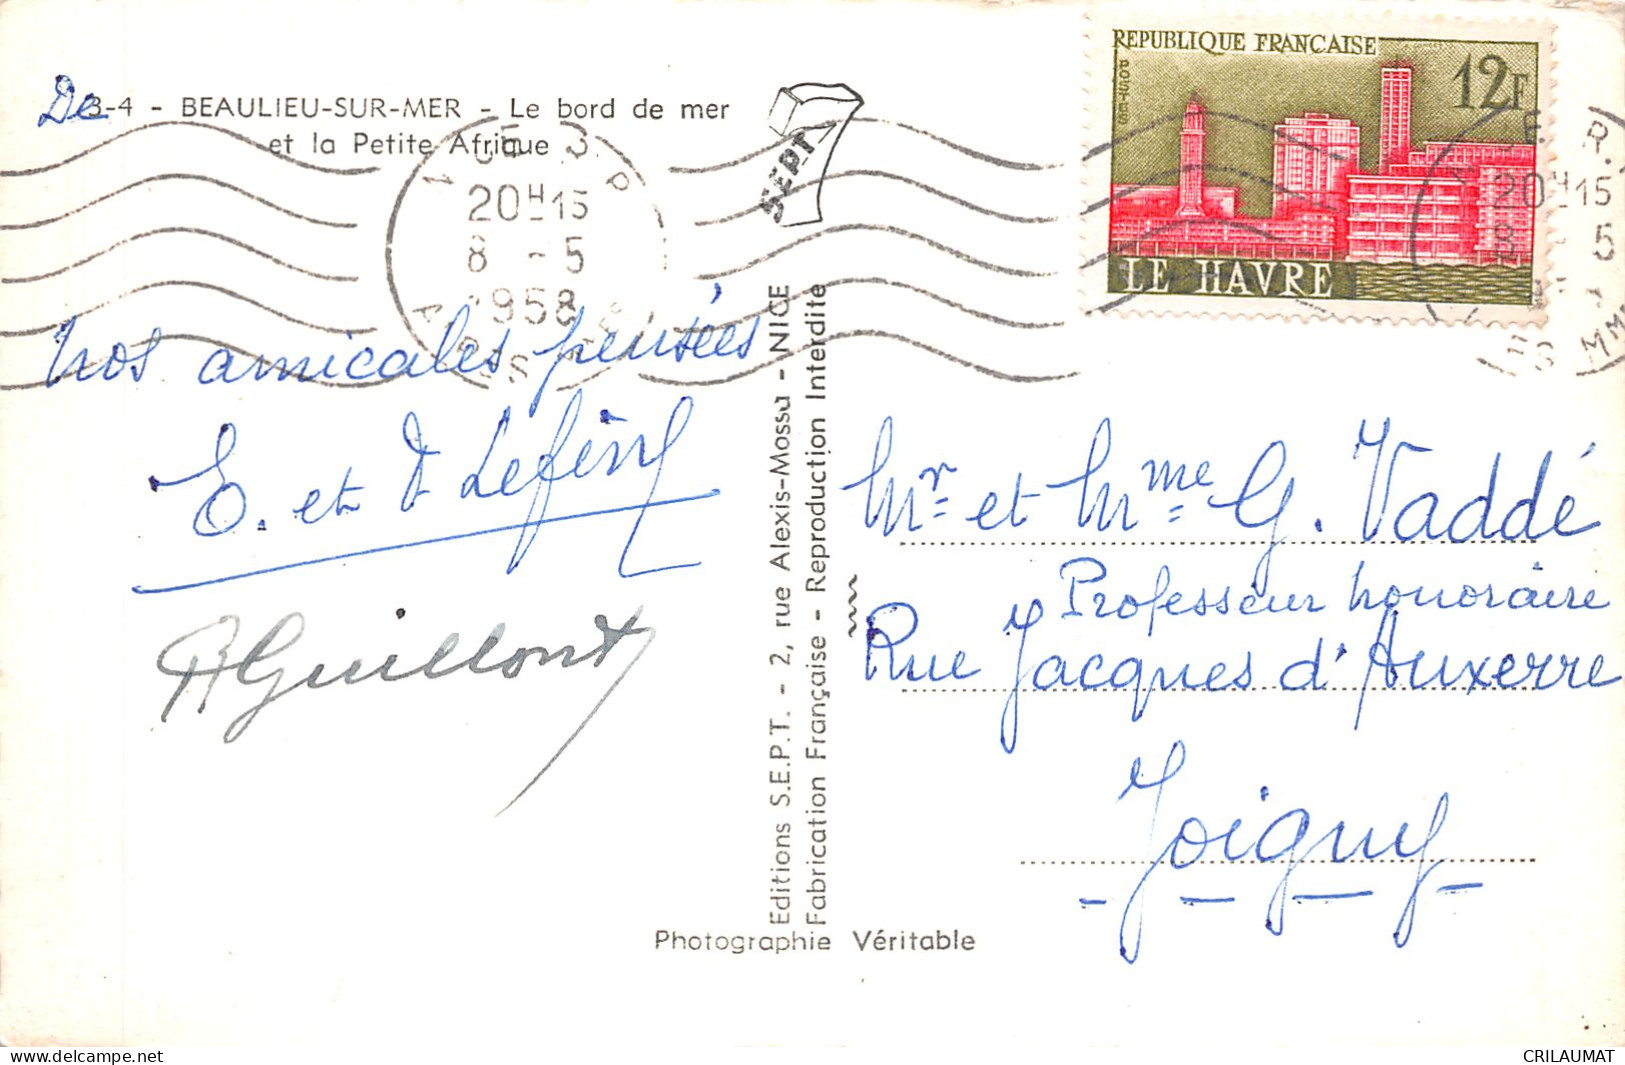 De 3-4 - BEAULIEU-SUR-MER - Le bord de mer
et la Petite Afrique
SEPT
20H15
8 - 5
1958
REPUBLIQUE FRANÇAISE
12F
LE HAVRE
20H15
8 5
nos amicales pensées
E. et
Guillont
Editions S.E.P.T. - 2, rue Alexis-Mossa - NICE
Fabrication Française - Reproduction Interdite
Mr et Mme G. Vaddé
Professeur honoraire
Rue Jacques d'Auxerre
Joigny
Photographie Véritable
CRILAUMAT